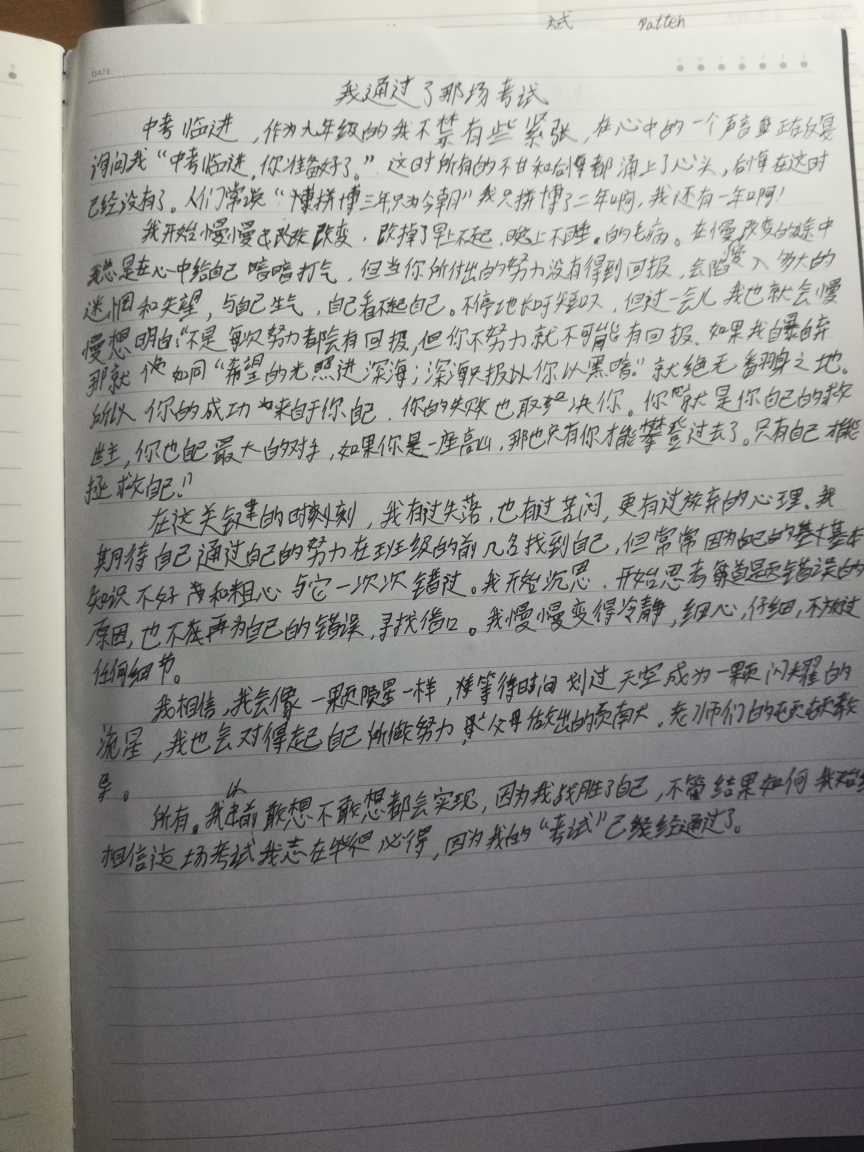 试 Patten
DATE
我通过了那场考试
中考临进，作为九年级的我不禁有些紧张，在心中的一个声音正在反复
询问我“中考临进，你准备好了。”这时所有的不甘和后悔都涌上了心头，后悔在这时
已经没有了。人们常说“拼搏三年只为今朝”我只拼搏了二年啊，我还有一年啊！
我开始慢慢改变，改掉了早上不起，晚上不睡。的毛病。在慢慢改变的途中
我总是在心中给自己暗暗打气，但当你所付出的努力没有得到回报，会陷入多大的
迷惘和失望，与自己生气，自己看不起自己。不停地长吁短叹，但过一会儿我也就会慢
慢想明白“不是每次努力都会有回报，但你不努力就不可能有回报，如果我自暴自弃
那就如同“希望的光照进深海；深海只报以你以黑暗。”就绝无翻身之地。
所以你的成功来自于你自己，你的失败也取决你。你就是你自己的救
世主，你也自己最大的对手，如果你是一座高山，那也只有你才能攀登过去了。只有自己才能
拯救自己。”
在这关键的时时刻刻，我有过失落，也有过苦闷，更有过放弃的心理。我
期待自己通过自己的努力在班级的前几名找到自己，但常常因为自己的基本
知识不好和粗心与它一次次错过。我开始沉思，开始思考每道题错误的
原因，也不在再为自己的错误，寻找借口。我慢慢变得冷静，细心，仔细，不放过
任何细节。
我相信，我会像一颗陨星一样，等待时间划过天空成为一颗闪耀的
流星，我也会对得起自己所做努力，父母做出的贡献，老师们的教
导。
所有。我以前敢想不敢想都会实现，因为我战胜了自己，不管结果如何我始终
相信这场考试我志在必得，因为我的“考试”已经经通过了。